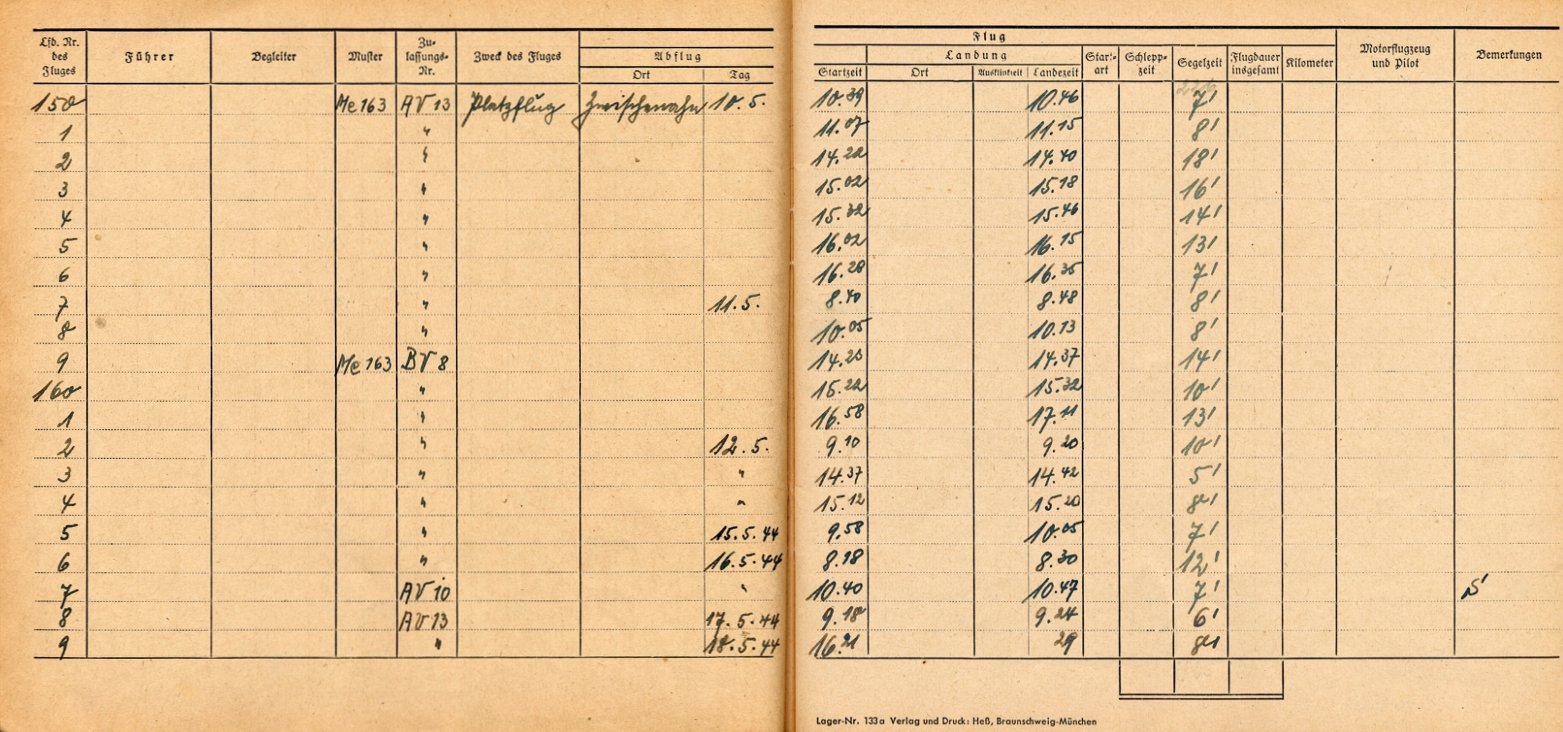 Lfd. Nr. des Fluges Führer Begleiter Muster Zu-lassungs-Nr. Zweck des Fluges Abflug Ort Tag
Flug
Startzeit Landung Ort Ausklinkzeit Landezeit Start-art Schlepp-zeit Segelzeit Flugdauer insgesamt Kilometer Motorflugzeug und Pilot Bemerkungen
150 Me 163 AV 13 Platzflug Zwischenahn 10.5. 10.39 10.46 7'
1 " 11.07 11.15 8'
2 " 14.22 14.40 18'
3 " 15.02 15.18 16'
4 " 15.32 15.46 14'
5 " 16.02 16.15 13'
6 " 16.28 16.35 7'
7 " 11.5. 8.40 8.48 8'
8 " 10.05 10.13 8'
9 Me 163 BV 8 14.23 14.37 14'
160 " 15.22 15.32 10'
1 " 16.58 17.11 13'
2 " 12.5. 9.10 9.20 10'
3 " " 14.37 14.42 5'
4 " " 15.12 15.20 8'
5 " 15.5.44 9.58 10.05 7'
6 " 16.5.44 8.18 8.30 12'
7 AV 10 " 10.40 10.47 7'
8 AV 13 17.5.44 9.18 9.24 6'
9 " 18.5.44 16.21 29 8'
Lager-Nr. 133a Verlag und Druck: Heß, Braunschweig-München